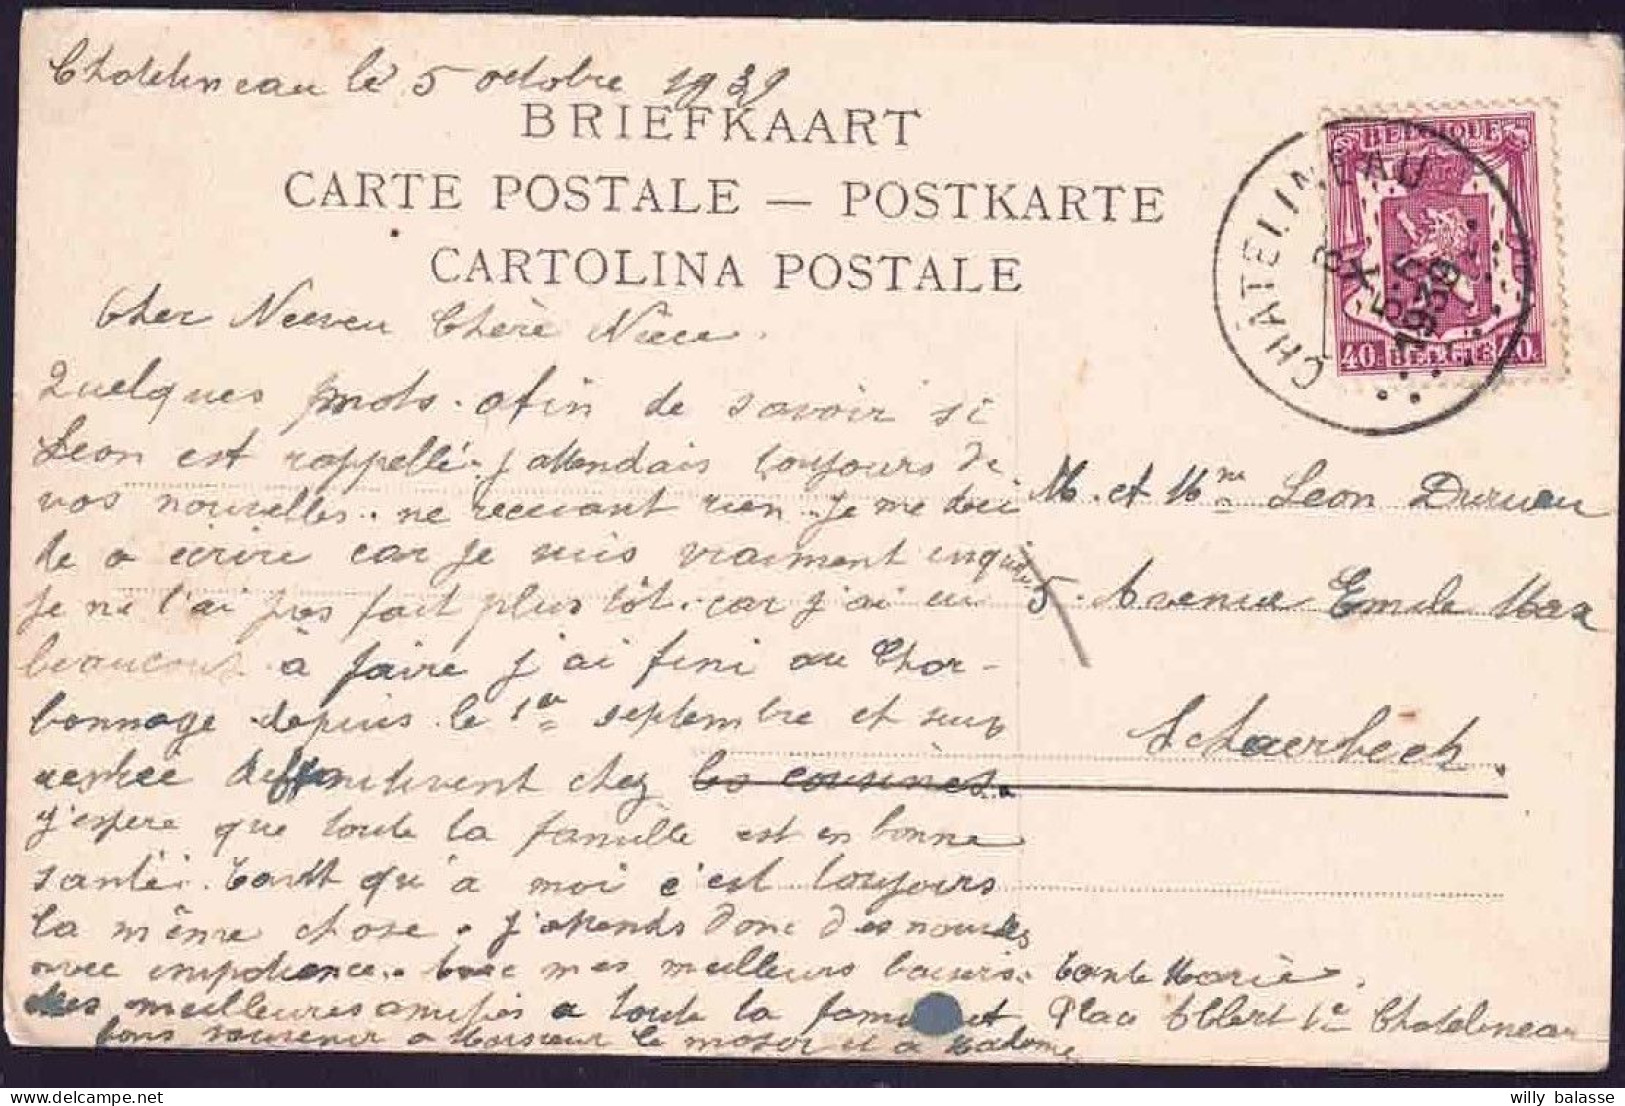 Chatelineau le 5 octobre 1939
BRIEFKAART
CARTE POSTALE — POSTKARTE
CARTOLINA POSTALE
BELGIQUE
40c BELGIE 40c
CHÂTELINEAU
B
5-X
1939
Cher Neuveu Chère Nièce.
Quelques mots. afin de savoir si
Leon est rappellé. j'attendais toujours de
vos nouvelles. ne recevant rien. je me deci
de a écrire car je suis vraiment inquiète
je ne l'ai pas fait plus tôt. car j'ai eu
beaucoup à faire j'ai fini au Char-
bonnage depuis le 1er septembre et suis
restée deffinitivent chez les cousines.
j'espère que toute la famille est en bonne
santé. tantt qu'a moi c'est toujours
la même chose. j'attends donc des nouvelles
avec impatience. Avec mes meilleurs baisers. Tante Marie.
des meilleures amitiés a toute la famille et
bons souvenir a Monsieur le major et a Madame
M. et Mme Leon Duruau
5. Avenue Emile Max
Schaerbeek.
Place Albert 1er Chatelineau
willy balasse